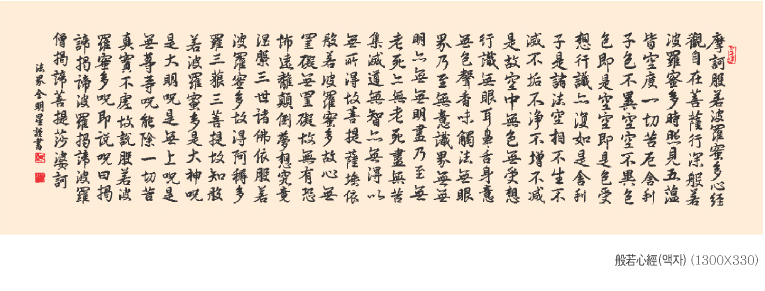 摩訶般若波羅蜜多心経
觀自在菩薩行深般若
波羅蜜多時照見五蘊
皆空度一切苦厄舍利
子色不異空空不異色
色即是空空即是色受
想行識亦復如是舍利
子是諸法空相不生不
滅不垢不淨不增不減
是故空中無色無受想
行識無眼耳鼻舌身意
無色聲香味觸法無眼
界乃至無意識界無無
明亦無無明盡乃至無
老死亦無老死盡無苦
集滅道無智亦無得以
無所得故菩提薩埵依
般若波羅蜜多故心無
罣礙無罣礙故無有恐
怖遠離顛倒夢想究竟
涅槃三世諸佛依般若
波羅蜜多故得阿耨多
羅三藐三菩提故知般
若波羅蜜多是大神呪
是大明呪是無上呪是
無等等呪能除一切苦
真實不虛故說般若波
羅蜜多呪即說呪曰揭
諦揭諦波羅揭諦波羅
僧揭諦菩提莎婆訶
法界金明星謹書
般若心經(액자) (1300X330)